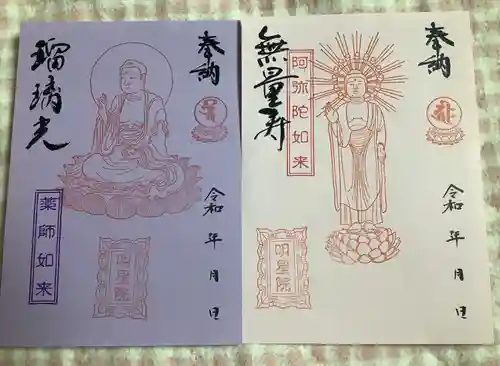 奉納
瑠璃光
薬師如来
明星院
令和 年 月 日
奉納
無量寿
阿弥陀如来
明星院
令和 年 月 日